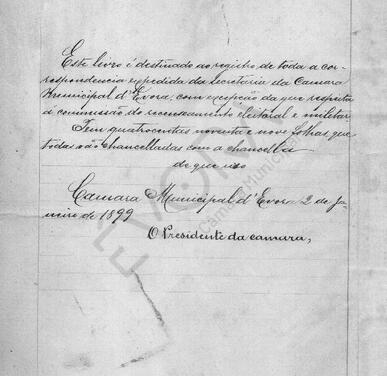 Este livro é destinado ao registro, de toda a cor-
respondencia expedida da secretaria da Camara
Municipal d'Evora, com excepção da que respeita
á commissão do recenseamento eleitoral e militar.
Tem quatrocentas noventa e nove folhas que
todas vão chancelladas com a chancella
de que uso
Camara Municipal d'Evora 2 de Ja-
neiro de 1899
O Presidente da camara,